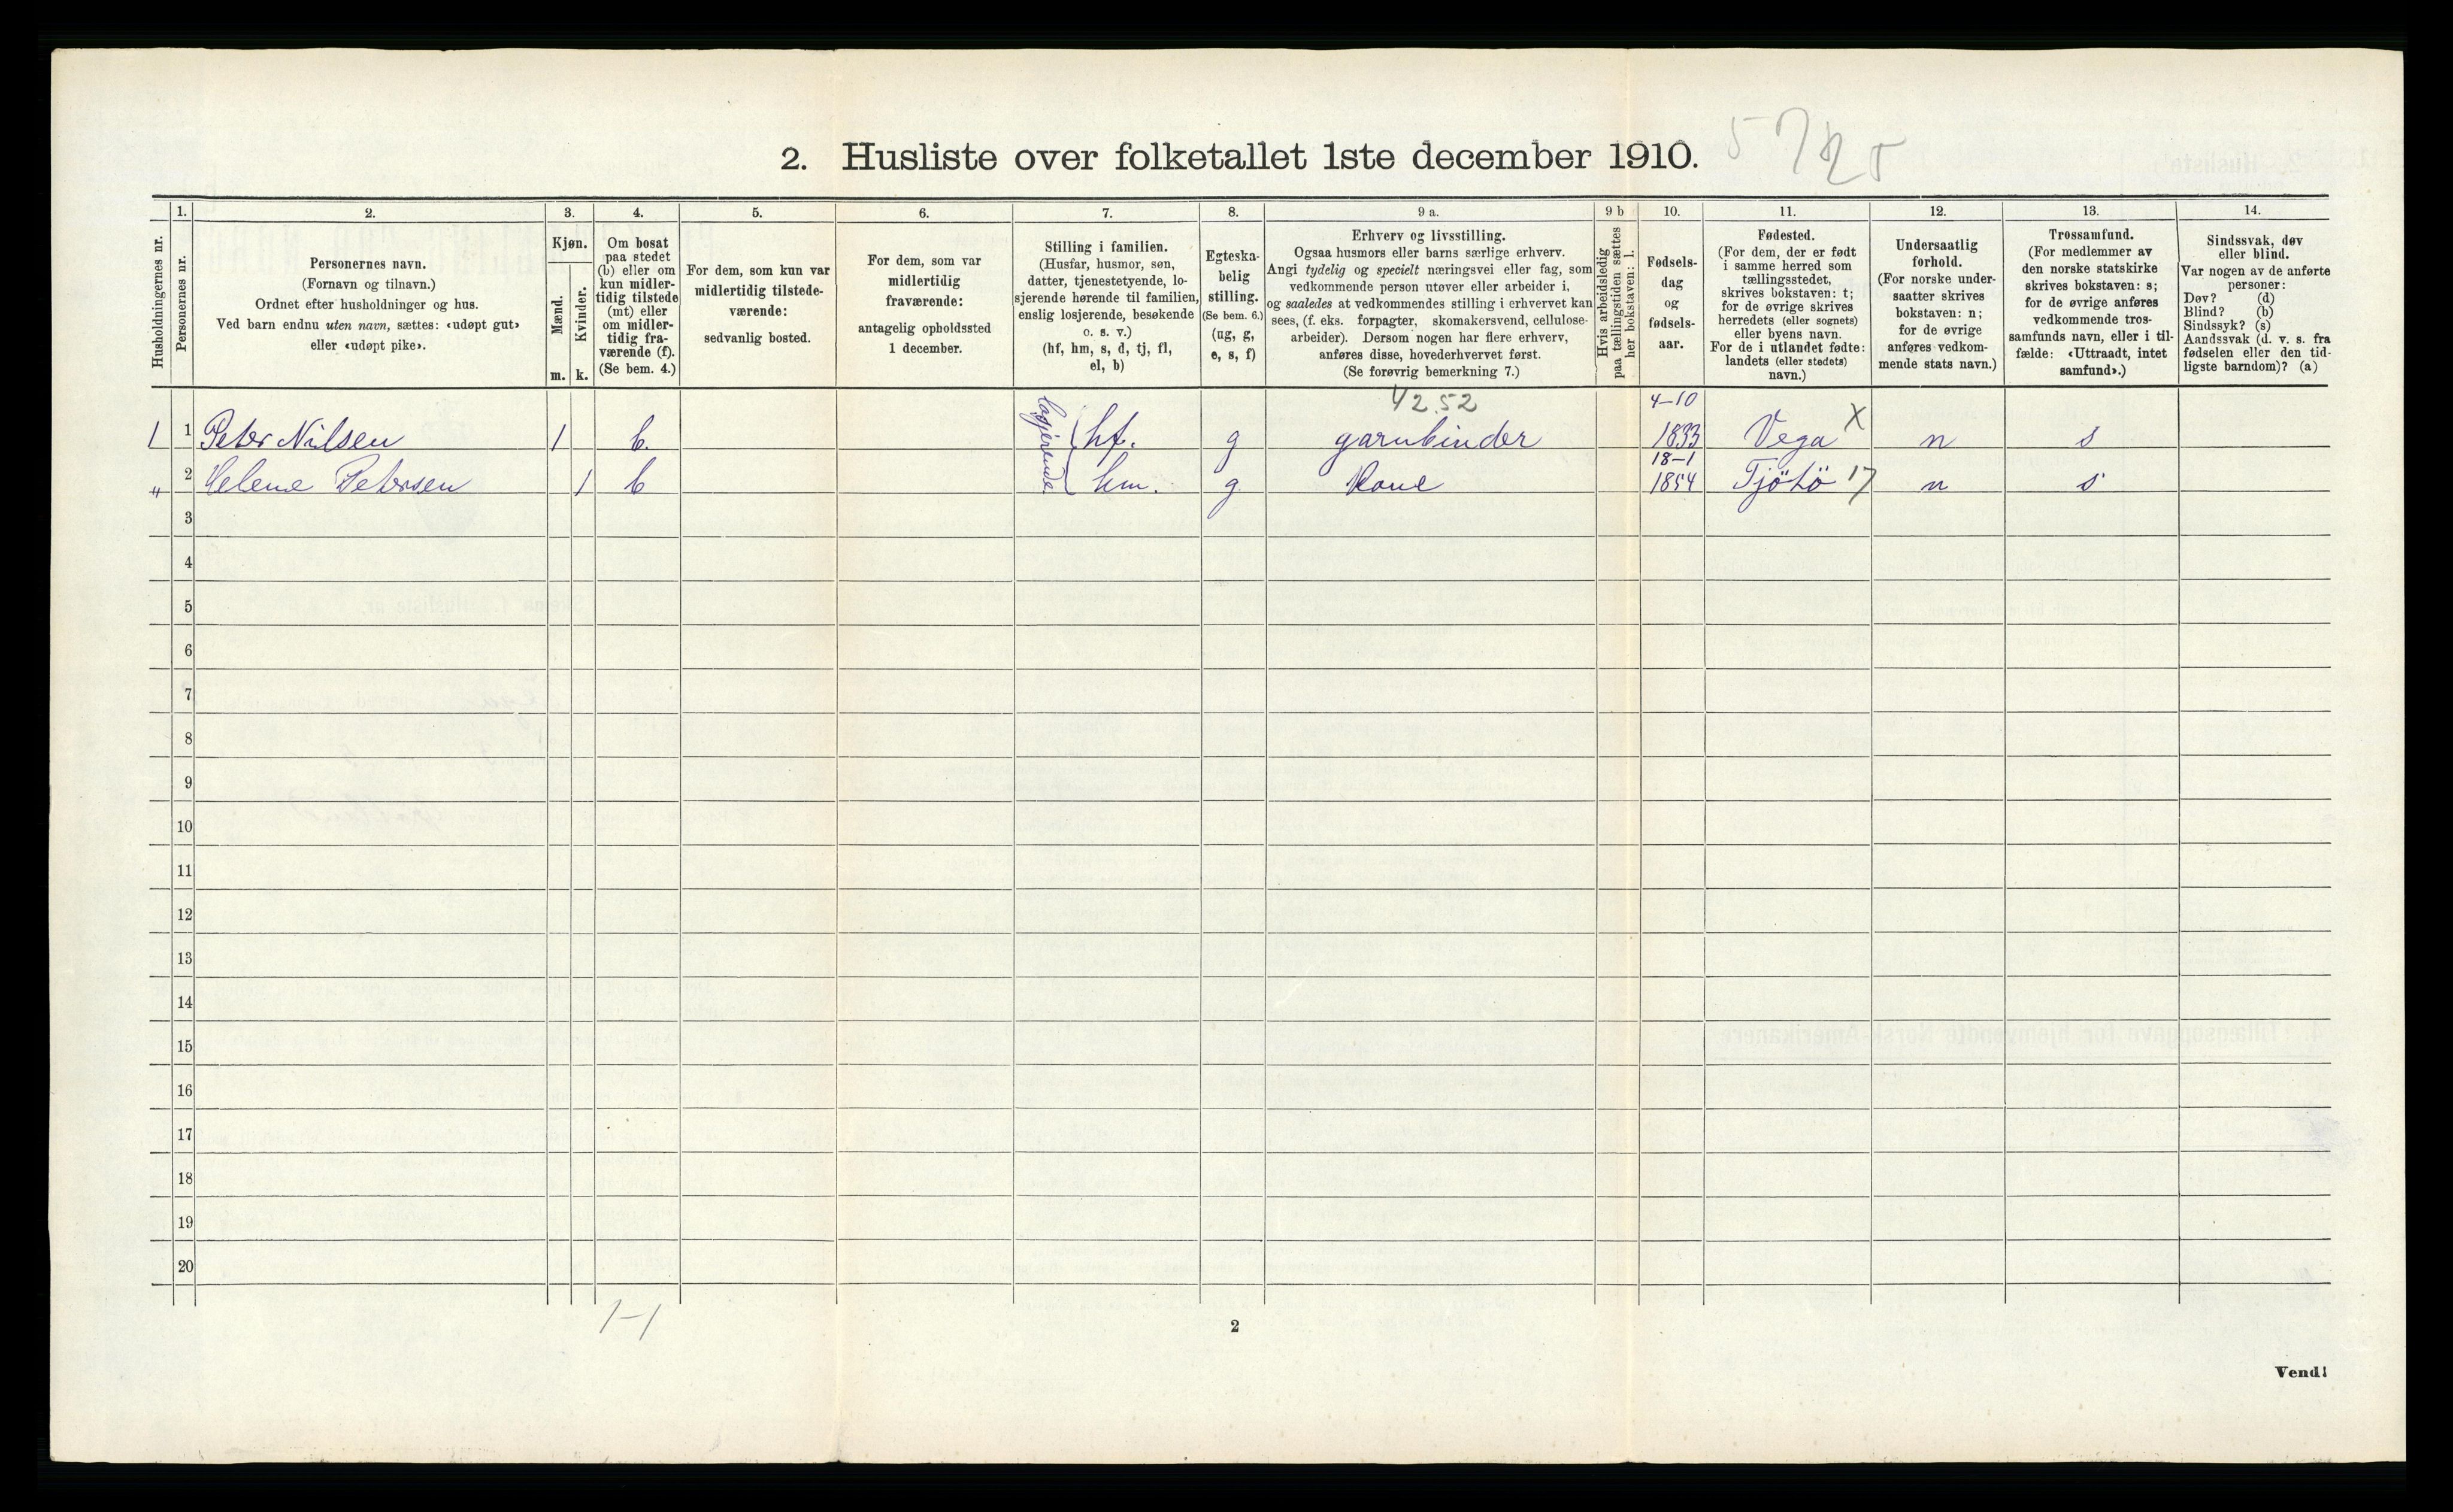 2. Husliste over folketallet 1ste december 1910.
Husholdningernes nr.
1.
Personernes nr.
2.
Personernes navn.
(Fornavn og tilnavn.)
Ordnet efter husholdninger og hus.
Ved barn endnu uten navn, sættes: «udøpt gut»
eller «udøpt pike».
3.
Kjøn.
Mænd.
Kvinder.
m.
k.
4.
Om bosat
paa stedet
(b) eller om
kun midler-
tidig tilstede
(mt) eller
om midler-
tidig fra-
værende (f).
(Se bem. 4.)
5.
For dem, som kun var
midlertidig tilstede-
værende:
sedvanlig bosted.
6.
For dem, som var
midlertidig
fraværende:
antagelig opholdssted
1 december.
7.
Stilling i familien.
(Husfar, husmor, søn,
datter, tjenestetyende, lo-
sjerende hørende til familien,
enslig losjerende, besøkende
o. s. v.)
(hf, hm, s, d, tj, fl,
el, b)
8.
Egteska-
belig
stilling.
(Se bem. 6.)
(ug, g,
e, s, f)
9 a.
Erhverv og livsstilling.
Ogsaa husmors eller barns særlige erhverv.
Angi tydelig og specielt næringsvei eller fag, som
vedkommende person utøver eller arbeider i,
og saaledes at vedkommendes stilling i erhvervet kan
sees, (f. eks. forpagter, skomakersvend, cellulose-
arbeider). Dersom nogen har flere erhverv,
anføres disse, hovederhvervet først.
(Se forøvrig bemerkning 7.)
9 b
Hvis arbeidsledig
paa tællingstiden sættes
her bokstaven: l.
10.
Fødsels-
dag
og
fødsels-
aar.
11.
Fødested.
(For dem, der er født
i samme herred som
tællingsstedet,
skrives bokstaven: t;
for de øvrige skrives
herredets (eller sognets)
eller byens navn.
For de i utlandet fødte:
landets (eller stedets)
navn.)
12.
Undersaatlig
forhold.
(For norske under-
saatter skrives
bokstaven: n;
for de øvrige
anføres vedkom-
mende stats navn.)
13.
Trossamfund.
(For medlemmer av
den norske statskirke
skrives bokstaven: s;
for de øvrige anføres
vedkommende tros-
samfunds navn, eller i til-
fælde: «Uttraadt, intet
samfund».)
14.
Sindssvak, døv
eller blind.
Var nogen av de anførte
personer:
Døv? (d)
Blind? (b)
Sindssyk? (s)
Aandssvak (d. v. s. fra
fødselen eller den tid-
ligste barndom)? (a)
42.52
4-10
1 1 Peter Nilsen 1 b. losjerende hf. g garnbinder 1833 Vega X n s
18-1
" 2 Helene Petersen 1 b hm. g Kone 1854 Tjötö 17 n s
3
4
5
6
7
8
9
10
11
12
13
14
15
16
17
18
19
20
1-1
2
Vend!